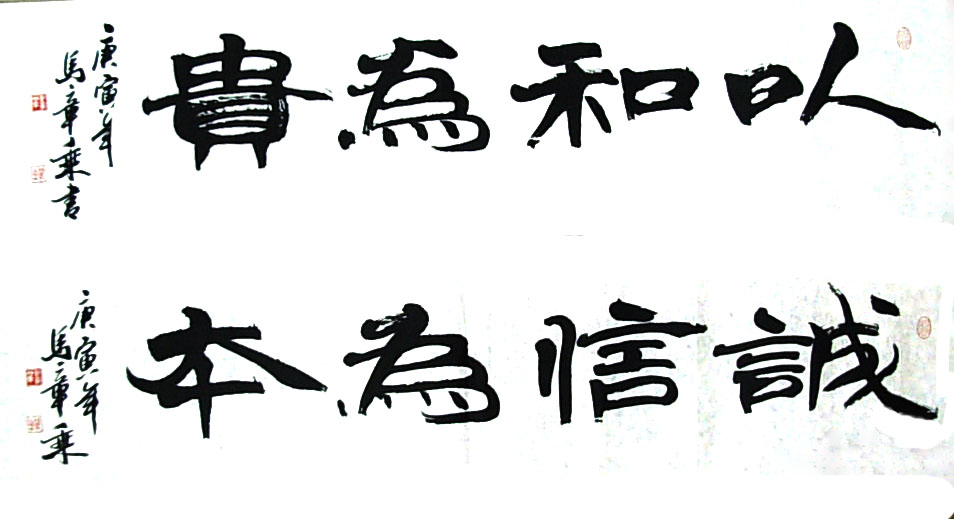 以和為貴
庚寅年
馬章乘書
誠信為本
庚寅年
馬章乘